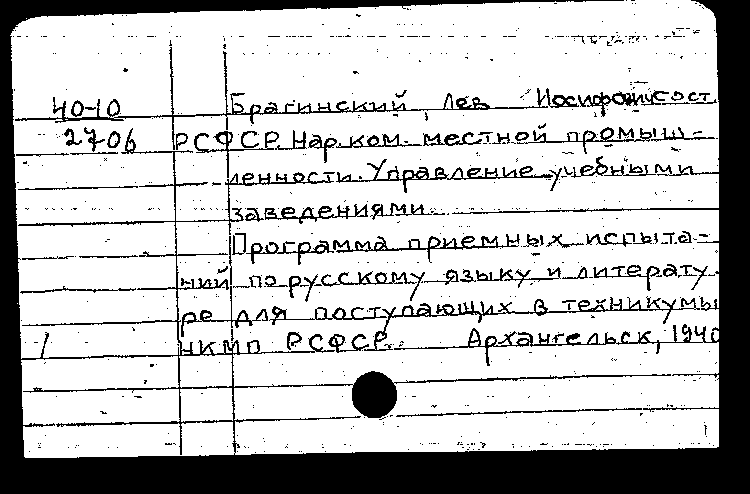 40-10
2706
Брагинский, Лев Иосифович сост.
РСФСР. Нар.ком. местной промыш-
ленности. Управление учебными
заведениями.
Программа приемных испыта-
ний по русскому языку и литерату-
ре для поступающих в техникумы
НКМП РСФСР. Архангельск, 1940